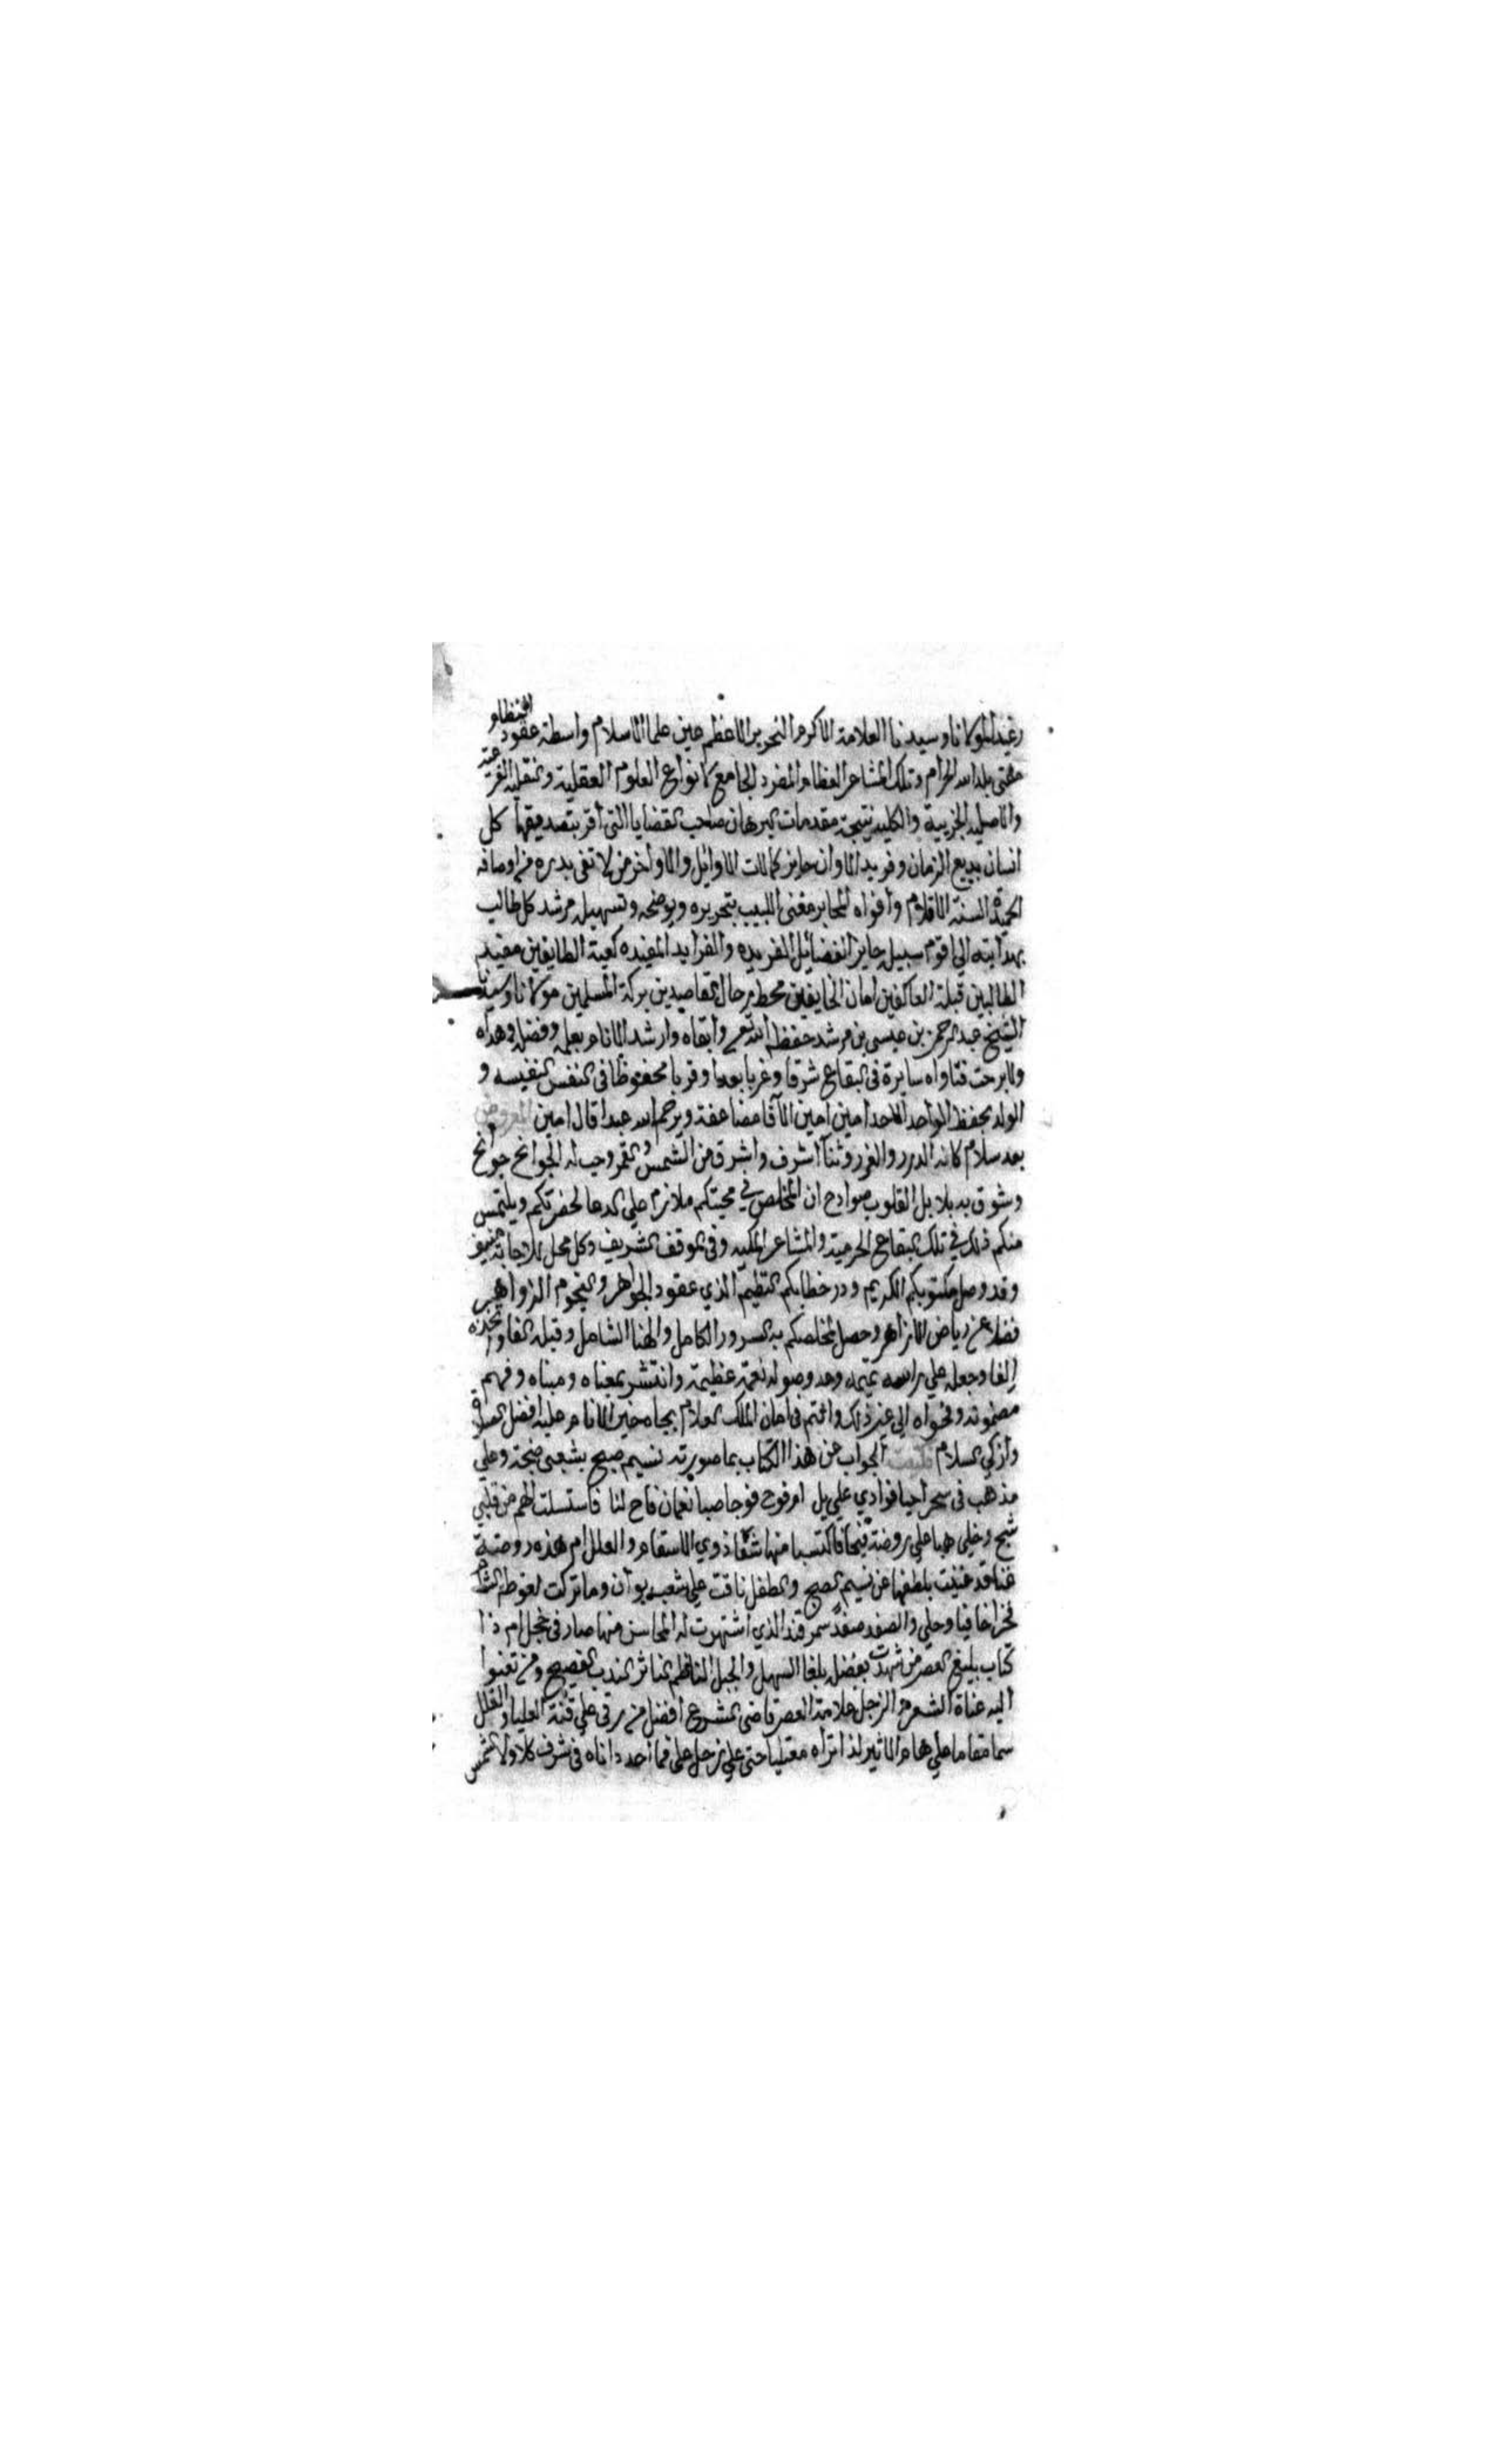 مولانا وسيدنا العلامة الاكرم النحرير الاعظم عين علما الاسلام واسطة عقود النظام
مفتى بلد الله الحرام وتلك المشاعر العظام المفرد الجامع لانواع العلوم العقلية والنقلية الفرعية
والاصلية الجزيية والكلية نتيجة مقدمات البرهان صاحب القضايا التى أقر بتصديقها كل
انسان بديع الزمان وفريد الاوان حايز كمالات الاوائل والاواخر من لا تفى بدره من اوصافه
الحميدة السنة الاقلام وأفواه المحابر مغنى اللبيب بتحريره وتوضيحه وتسهيله مرشد كل طالب
بهدايته الى اقوم سبيل حايز الفضائل الفريده والفرايد المفيده كعبة الطايفين مفيد
الطالبين قبلة العاكفين امان الخايفين محط رحال القاصدين بركة المسلمين مولانا وسيدنا
الشيخ عبد الرحمن بن عيسى بن مرشد حفظه الله تعالى وأبقاه وارشد الانام بعلمه وفضله وهداه
ولا برحت فتاواه سايرة فى البقاع شرقا وغربا بعدا وقربا محفوظا فى النفس النفيسه و
الولد بحفظ الواحد الاحد امين امين الآفا مضاعفة ويرحم الله عبدا قال امين المعروض
بعد سلام كانه الدرر والغرر وثنآ اشرف واشرق من الشمس والقمر وحب له الجوانح جوانح
وشوق به بلابل القلوب صوادح ان المخلص في محبتكم ملازم على الدعا لحضرتكم ويلتمس
منكم ذلك في تلك البقاع الحرمية والمشاعر المكيه وفى الموقف الشريف وكل محل للاجابة منيف
وقد وصل مكتوبكم الكريم ودر خطابكم النظيم الذي عقود الجواهر والنجوم الزواهر
فضلا عن رياض الازاهر وحصل لمخلصكم به السرور الكامل والهنا الشامل وقبله الفا واتخذه
إلفا وجعله على راسه تميمه وعد وصوله نعمة عظيمة وانتشر بمعناه ومبناه وفهم
مضمونه وفحواه الى غير ذلك وانتم فى امان الملك العلام بجاه خير الانام عليه افضل الصلاة
وأزكى السلام فكتبت الجواب عن هذا الكتاب بما صورته نسيم صبح بشعبى ضجة وعلى
مذهب فى سحر أحيا فوادي علي بل ام فوح فوجا صبا نعمان فاح لنا فاستسلت الهم من قلبي
شج وخلى هبا على روضة فيحا فاكتسبا منها شفا ذوي الاسقام والعلل ام هذه روضة
غنا قد غنيت بلطفها عن نسيم الصبح والطفل ناقت على شعب بوان وما تركت لغوطة الشام
فخرا خافيا وجلى والصغد صغد سمرقند الذي اشتهرت له المحاسن منها صار فى خجل ام ذا
كتاب بليغ العصر من شهدت بفضل بلغا السهل والجبل الناظم الناثر الندب الفصيح ومن تعنوا
اليه عناة الشعر والزجل علامة العصر قاضى الشرع أفضل من رقى على قنة العليا والقلل
سما مقاما على هام الاثير لذا تراه معتليا حتى على زحل على فما أحد داناه فى شرف كلا ولا شمس